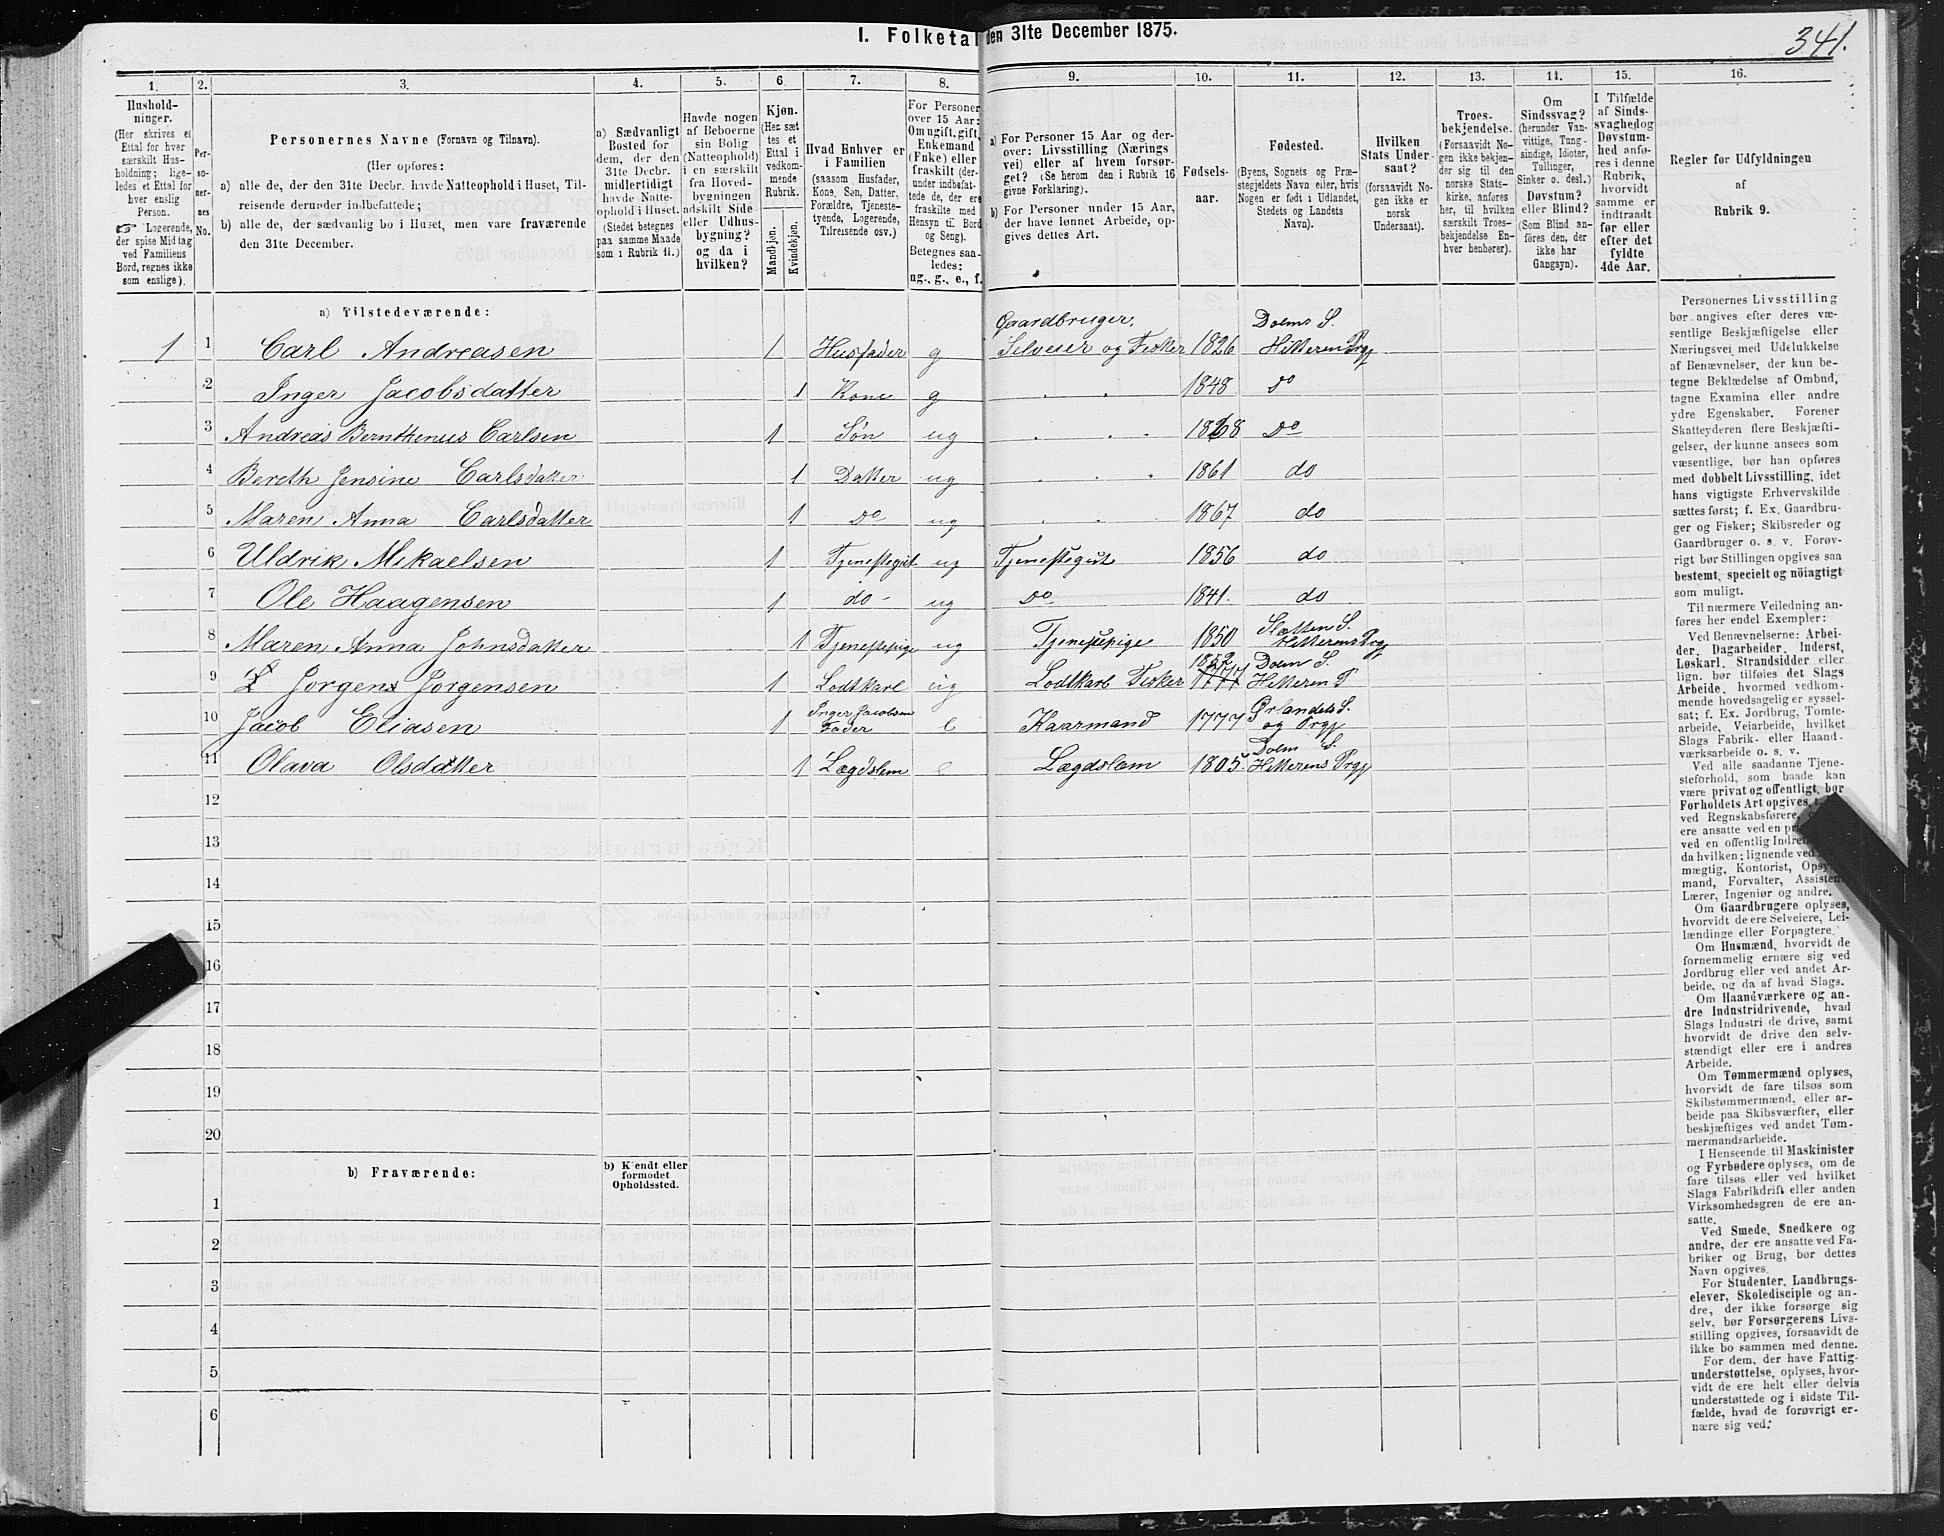 I. Folketal den 31te December 1875.
341.
1.
2.
3.
4.
5.
6.
7.
8.
9.
10.
11.
12.
13.
14.
15.
16.
Hushold-
ninger.
(Her skrives et
Ettal for hver
særskilt Hus-
holdning; lige-
ledes et Ettal for
hver enslig
Person.
☞ Logerende,
der spise Middag
ved Familiens
Bord, regnes ikke
som enslige).
Per-
so-
ner-
nes
No.
Personernes Navne (Fornavn og Tilnavn).
(Her opføres:
a) alle de, der den 31te Decbr. havde Natteophold i Huset, Til-
reisende derunder indbefattede;
b) alle de, der sædvanlig bo i Huset, men vare fraværende
den 31te December.
a) Sædvanligt
Bosted for
dem, der den
31te Decbr.
midlertidigt
havde Natte-
ophold i Huset.
(Stedet betegnes
paa samme Maade
som i Rubrik 11.)
Havde nogen
af Beboerne
sin Bolig
(Natteophold)
i en særskilt
fra Hoved-
bygningen
adskilt Side-
eller Udhus-
bygning?
og da i
hvilken?
Kjøn.
(Her sæt-
tes et
Ettal i
vedkom-
mende
Rubrik.
Mandkjøn.
Kvindekjøn.
Hvad Enhver er
i Familien
(saasom Husfader,
Kone, Søn, Datter,
Forældre, Tjeneste-
tyende, Logerende,
Tilreisende osv.)
For Personer
over 15 Aar:
Om ugift, gift,
Enkemand
(Enke) eller
fraskilt (der-
under indbefat-
tede de, der ere
fraskilte med
Hensyn til Bord
og Seng).
Betegnes saa-
ledes:
ug., g., e., f.
a) For Personer 15 Aar og der-
over: Livsstilling (Nærings-
vei) eller af hvem forsør-
get? (Se herom den i Rubrik 16
givne Forklaring).
b) For Personer under 15 Aar,
der have lønnet Arbeide, op-
gives dettes Art.
Fødsels-
aar.
Fødested.
(Byens, Sognets og Præ-
stegjeldets Navn eller, hvis
Nogen er født i Udlandet,
Stedets og Landets
Navn).
Hvilken
Stats Under-
saat?
(forsaavidt No-
gen ikke er
norsk
Undersaat).
Troes-
bekjendelse.
(Forsaavidt No-
gen ikke bekjen-
der sig til den
norske Stats-
kirke, anføres
her, til hvilken
særskilt Troes-
bekjendelse En-
hver henhører).
Om
Sindssvag?
(herunder Van-
vittige, Tung-
sindige, Idioter,
Tullinger,
Sinker o. desl.)
Døvstum?
eller Blind?
(Som Blind an-
føres den, der
ikke har
Gangsyn).
I Tilfælde
af Sinds-
svaghed og
Døvstum-
hed anfø-
res i denne
Rubrik,
hvorvidt
samme er
indtraadt
før eller
efter det
fyldte
4de Aar.
Regler for Udfyldningen
af
Rubrik 9.
a) Tilstedeværende:
1 1 Carl Andreasen 1 Husfader g Gaardbruger, Selveier og Fisker 1826 Dolms S. Hitteren Prgj
2 Inger Jacobsdatter 1 Kone g " " 1848 do
3 Andreas Bernttenus Carlsen 1 Søn ug " " " 1868 do
4 Bereth Jensine Carlsdatter 1 Datter ug " " " 1861 do
5 Maren Anna Carlsdatter 1 do ug " " 1867 do
6 Uldrik Mikaelsen 1 Tjenestegut ug Tjenestegut 1856 do
7 Ole Haagensen 1 do - ug do 1841. do
8 Maren Anna Johnsdatter 1 Tjenestepige ug Tjenestepige 1850 Sletten S. Hitterens Prgj
9 Jørgen Jørgensen 1 Lodtkarl ug Lodtkarl Fisker 1852 1777 Dolm S. Hitteren P
10 Jacob Eliasen 1 Inger Jacobsen Fader e Kaarmand 1777 Ørlandets S. og Prgj
11 Olava Olsdatter 1 Lægdslem e Lægdslem 1805. Dolm S. Hitterens Prgj
12
13
14
15
16
17
18
19
20
b) Fraværende:
b) Kjendt eller
formodet
Opholdssted.
1
2
3
4
5
6
Personernes Livsstilling
bør angives efter deres væ-
sentlige Beskjæftigelse eller
Næringsvei med Udelukkelse
af Benævnelser, der kun be-
tegne Beklædelse af Ombud,
tagne Examina eller andre
ydre Egenskaber. Forener
Skatteyderen flere Beskjæfti-
gelser, der kunne ansees som
væsentlige, bør han opføres
med dobbelt Livsstilling, idet
hans vigtigste Erhvervskilde
sættes først; f. Ex. Gaardbru-
ger og Fisker; Skibsreder og
Gaardbruger o. s. v. Forøv-
rigt bør Stillingen opgives saa
bestemt, specielt og nöiagtigt
som muligt.
Til nærmere Veiledning an-
føres her endel Exempler:
Ved Benævnelserne: Arbei-
der, Dagarbeider, Inderst,
Løskarl, Strandsidder eller
lign. bør tilføies det Slags
Arbeide, hvormed vedkom-
mende hovedsagelig er syssel-
sat; f. Ex. Jordbrug, Tomte-
arbeide, Veiarbeide, hvilket
Slags Fabrik- eller Haand-
værksarbeide o. s. v.
Ved alle saadanne Tjene-
steforhold, som baade kan
være privat og offentligt, bør
Forholdets Art opgives,
ved Regnskabsførere,
ere ansatte ved en
ved en offentlig
da hvilken; lignende ved
mægtig, Kontorist,
mand, Forvalter,
Lærer, Ingeniør og andre.
Om Gaardbrugere oplyses,
hvorvidt de ere Selveiere, Lei-
lændinge eller Forpagtere.
Om Husmænd, hvorvidt de
fornemmelig ernære sig ved
Jordbrug eller ved andet Ar-
beide, og da af hvad Slags.
Om Haandværkere og an-
dre Industridrivende, hvad
Slags Industri de drive, samt
hvorvidt de drive den selv-
stændigt eller ere i andres
Arbeide.
Om Tømmermænd oplyses,
hvorvidt de fare tilsøs som
Skibstømmermænd, eller ar-
beide paa Skibsværfter, eller
beskjæftiges ved andet Tøm-
mermandsarbeide.
I Henseende til Maskinister
og Fyrbødere oplyses, om de
fare tilsøs eller ved hvilket
Slags Fabrikdrift eller anden
Virksomhedsgren de ere an-
satte.
Ved Smede, Snedkere og
andre, der ere ansatte ved Fa-
briker og Brug, bør dettes
Navn opgives.
For Studenter, Landbrugs-
elever, Skoledisciple og an-
dre, der ikke forsørge sig
selv, bør Forsørgerens Livs-
stilling opgives, forsaavidt de
ikke bo sammen med denne.
For dem, der have Fattig-
understøttelse, oplyses, hvor-
vidt de ere helt eller delvis
understøttede og i sidste Til-
fælde, hvad de forøvrigt er-
nære sig ved.